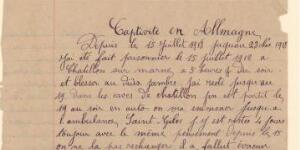 Captivité en Allmagne
Depuis le 15 juillet 1918 jusquau 22
jai été fait prisonnier le 15 juillet 1918 a
Chatillon sur marne a 3 heures du soir
et blesser au jambe jai resté jusqu au
19 dans les caves de chatillon on est partit le
19 au soir en auto on ma emmener jusqu a
l ambulance Saint Gilles j y est rester 4 jours
toujour avec le même pensement depuis le 15
on ne la pas rechanger il a fallut évacuer